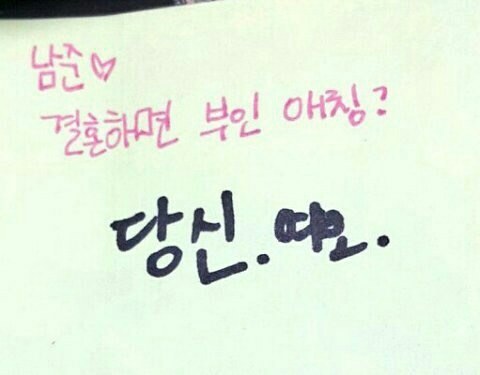 남준♡
결혼하면 부인 애칭?
당신.